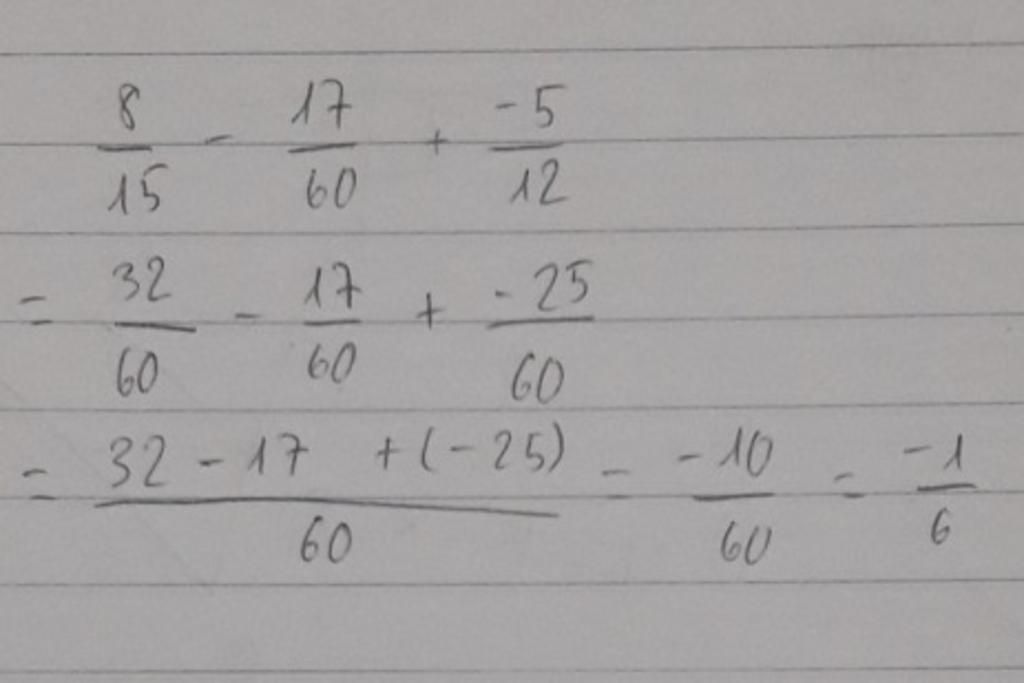 8/15 - 17/60 + -5/12
= 32/60 - 17/60 + -25/60
= 32 - 17 + (-25)/60 = -10/60 = -1/6